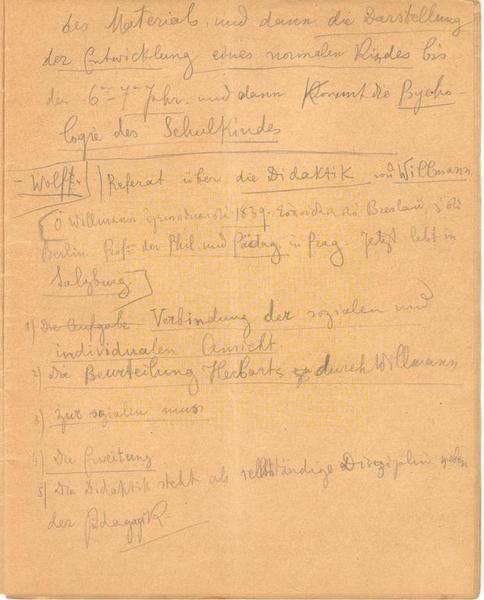 des Materials, und dann die Darstellung
der Entwicklung eines normalen Kindes bis
den 6ten–7ten Jahr. und dann Kommt die Psycho-
logie des Schulkindes
– Wolff. Referat über die Didaktik von Willmann.
O Willmann 1839. Breslau,
Berlin. Prof. der Phil und Pädag in Prag. Jetzt lebt in
Salzburg.
1) Die Aufgabe Verbindung der sozialen und
individualen Ansicht.
2) Die Beurteilung Herbarts durch Willmann
3) zur sozialen muss
4) Die
5) Die Didaktik steht als selbständige Disziplin neben
der Pdagogik.